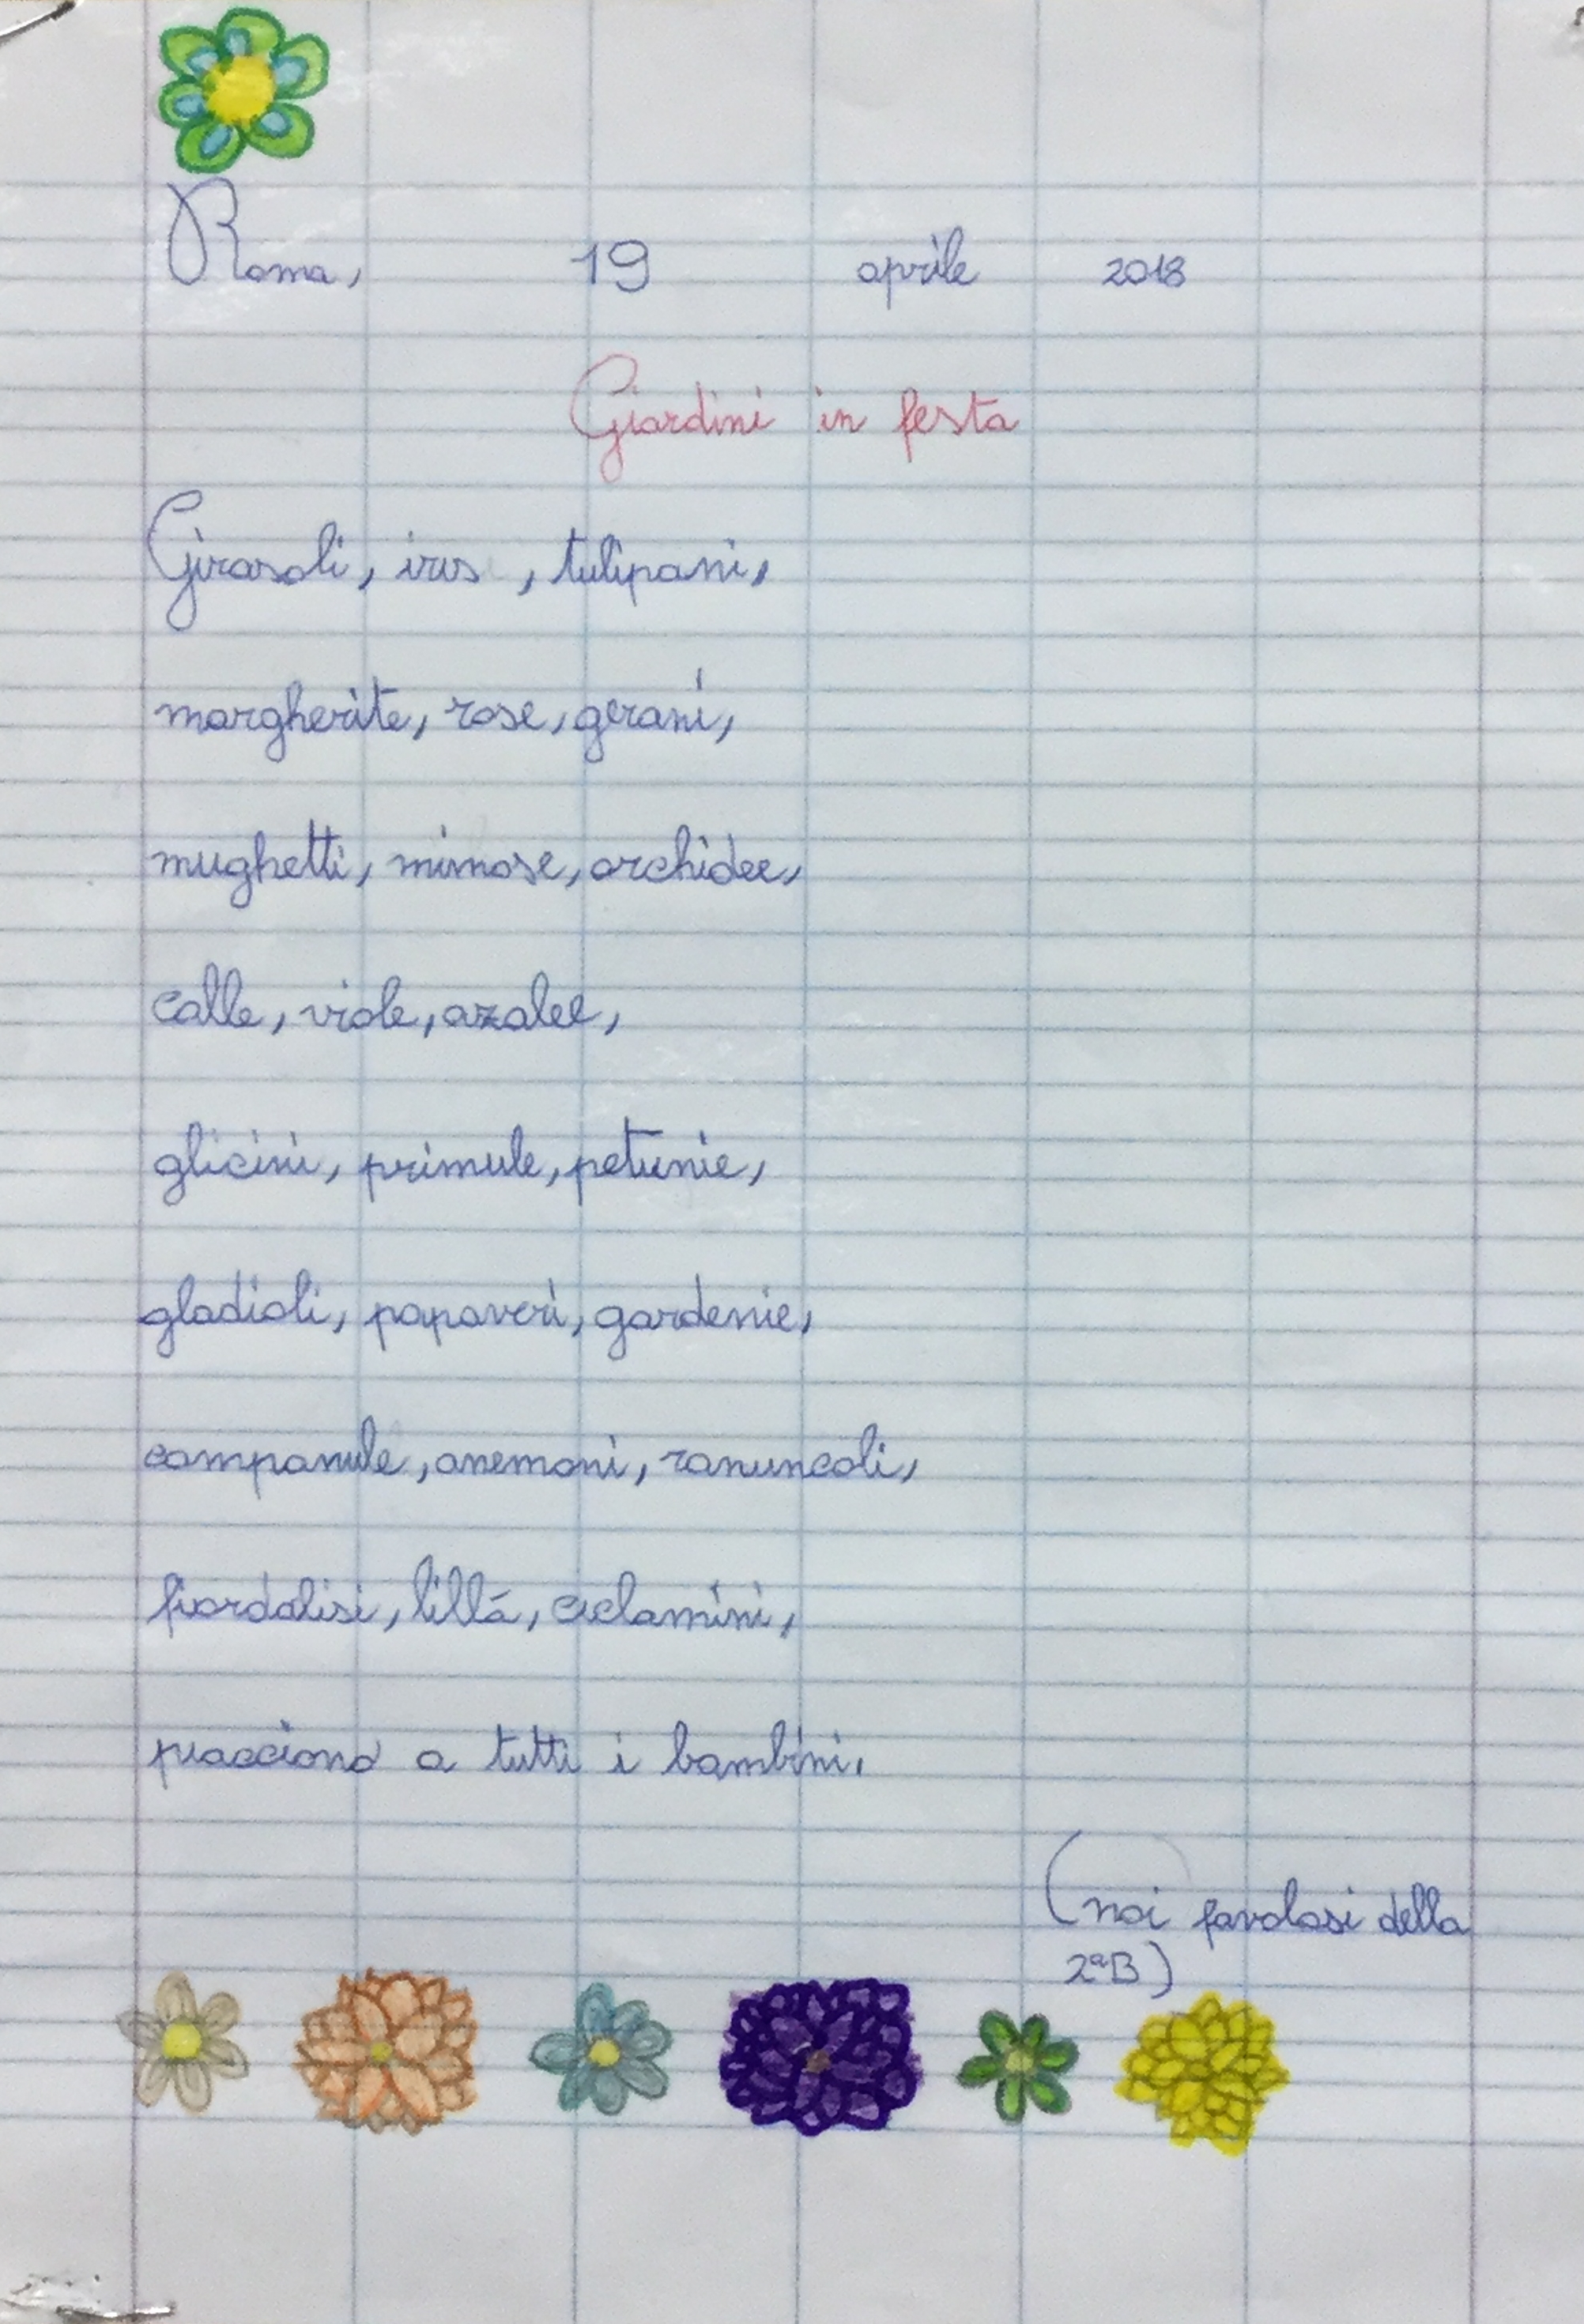 Roma, 19 aprile 2018
Giardini in festa
Girasoli, iris, tulipani,
margherite, rose, gerani,
mughetti, mimose, orchidee,
calle, viole, azalee,
glicini, primule, petunie,
gladioli, papaveri, gardenie,
campanule, anemoni, ranuncoli,
fiordalisi, lillá, ciclamini,
piacciono a tutti i bambini.
(noi favolosi della
2ªB)